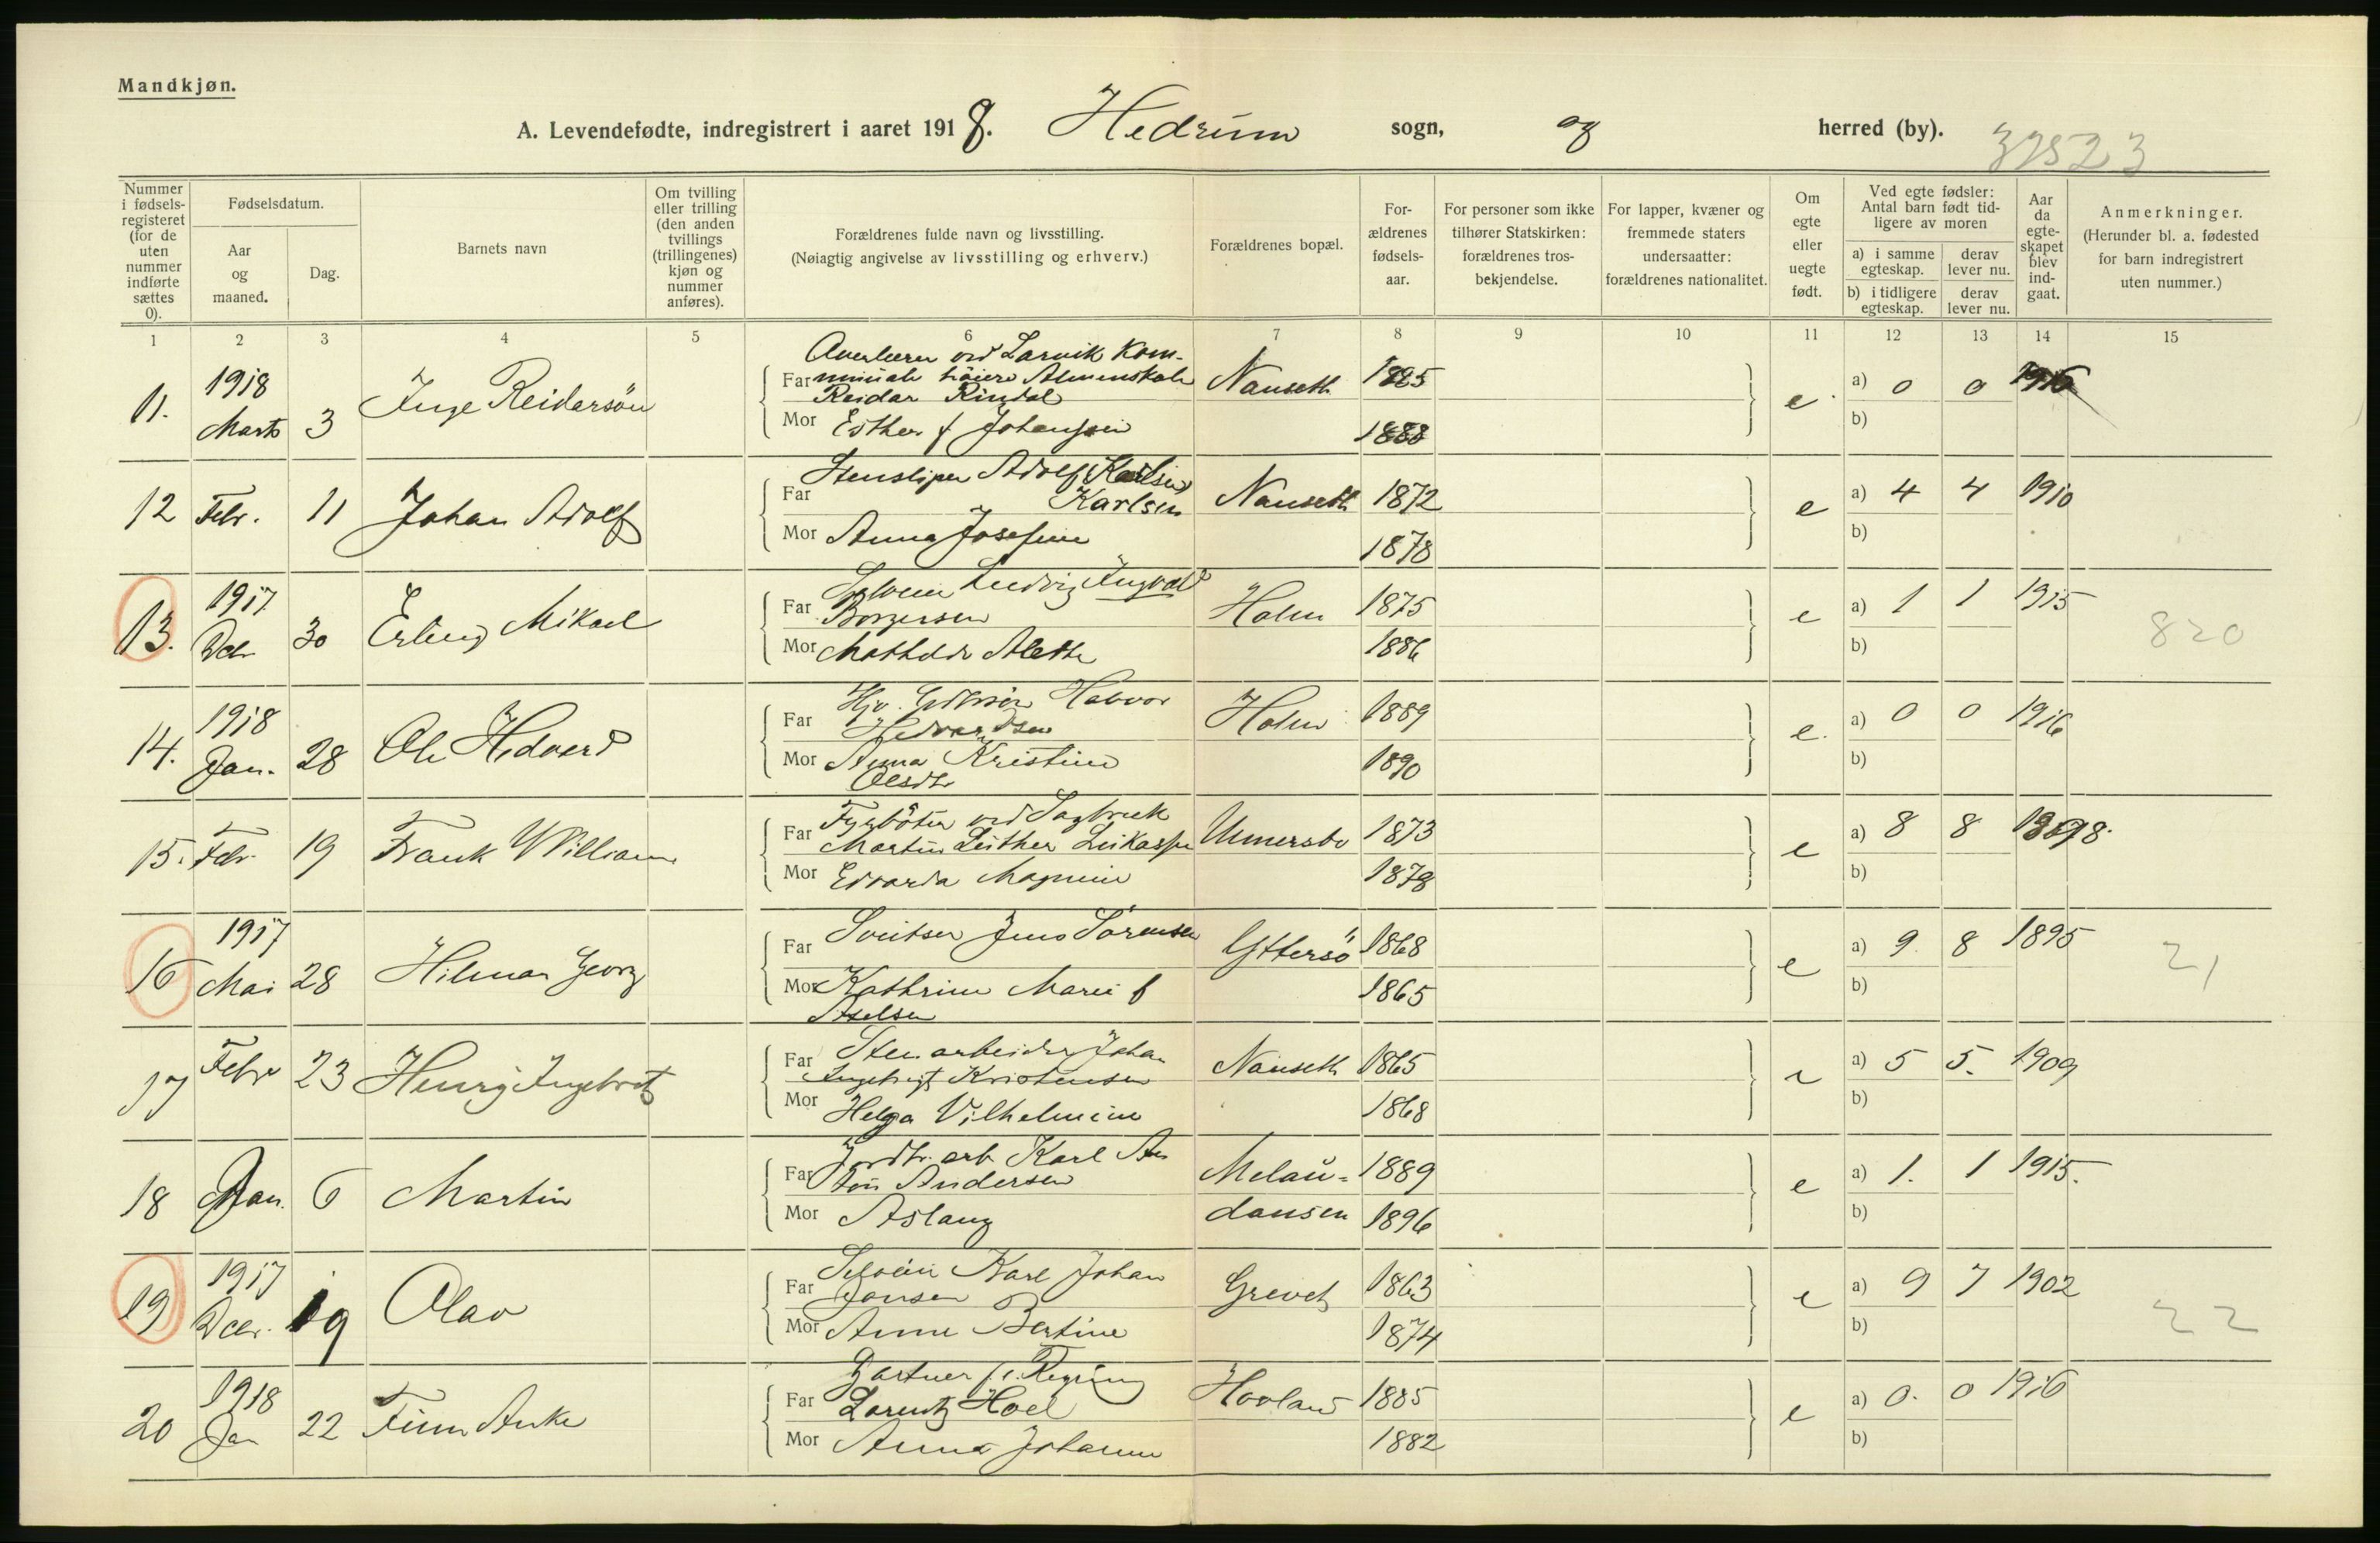 Mandkjøn.
A. Levendefødte, indregistrert i aaret 1918. Hedrum sogn, og herred (by). 32523
Nummer i fødsels-registeret (for de uten nummer indførte sættes 0).
Fødselsdatum.
Aar og maaned.
Dag.
Barnets navn
Om tvilling eller trilling (den anden tvillings (trillingenes) kjøn og nummer anføres).
Forældrenes fulde navn og livsstilling.
(Nøiagtig angivelse av livsstilling og erhverv.)
Forældrenes bopæl.
For-ældrenes fødsels-aar.
For personer som ikke tilhører Statskirken: forældrenes tros-bekjendelse.
For lapper, kvæner og fremmede staters undersaatter: forældrenes nationalitet.
Om egte eller uegte født.
Ved egte fødsler: Antal barn født tid-ligere av moren
a) i samme egteskap.
derav lever nu.
b) i tidligere egteskap.
derav lever nu.
Aar da egte-skapet blev ind-gaat.
Anmerkninger.
(Herunder bl. a. fødested for barn indregistrert uten nummer.)
1 2 3 4 5 6 7 8 9 10 11 12 13 14 15
11. 1918 Marts 3 Inge Reidarsön
Far ved Larvik Kom-
høiere Almenskole
Reidar Rindal
Nanseth 1885
Mor Esther f Johanssen 1888
e a) 0 0 1916
b)
12 Febr. 11 Johan Adolf
Far Stensliper Adolf Karlsen
Karlsen Nanseth 1872
Mor Anna Josefine 1878
e a) 4 4 1910
b)
13. 1917 Decbr 30 Erling Mikael
Far Selveier Ludvig Ingvald
Borgersen Holm 1875
Mor Mathilde Alette 1886
e a) 1 1 1915
b) 820
14. 1918 Jan. 28 Ole Hedvard
Far Halvor
Hedvardsen Holm 1889
Mor Anna Kristine
Olsdtr 1890
e. a) 0 0 1916
b)
15. Febr. 19 Frank William
Far Fyrbøter ved Sagbruk
Martin Luther Lukassen 1873
Mor Edvarda Magnine 1878
e a) 8 8 1898.
b)
16 1917 Mai 28 Hilmar Georg
Far Jens Sørensen Yttersö 1868
Mor Kathrine Marie f
Axelsen 1865
e a) 9. 8 1895
b) 21
17 Febr 23 Henry Ingebret
Far Stenarbeider Johan
Ingebrigt Kristensen Nanseth 1865
Mor Helga Vilhelmine 1868
e a) 5 5. 1909
b)
18 Jan. 6 Martin
Far Jordbr. arb Karl An
ton Andersen Melau-
dausen 1889
Mor Aslaug 1896
e a) 1. 1 1915.
b)
19 1917 Decbr. 19 Olav
Far Selveier Karl Johan
Jansen 1863
Mor Anne Bertine 1874
e a) 9 7 1902
b) 22
20 1918 Jan 22 Finn Anker
Far Gartner
Lorentz Hoel Hovland 1885
Mor Anna Johanne 1882
e a) 0. 0 1916
b)